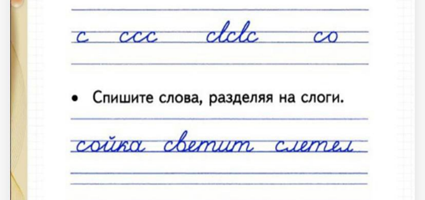 с ссс сlсlс со
• Спишите слова, разделяя на слоги.
сойка светит слетел